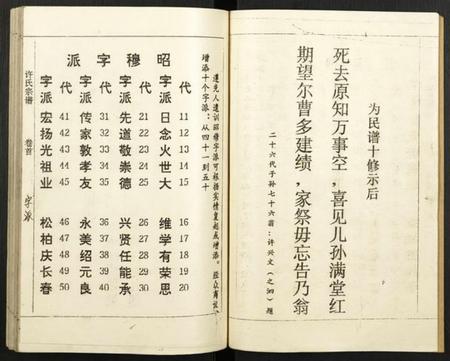 为民谱十修示后
死去原知万事空，喜见儿孙满堂红
期望尔曹多建绩，家祭毋忘告乃翁
二十六代子孙七十六翁：许兴文（之泗）题
遵先人遗训昭穆字派可根据实情复起点增添。经众商议，
增添十个字派：从四十一到五十
昭穆字派
代 11 12 13 14 15 16 17 18 19 20
字派 日念火世大 维学有荣思
代 21 22 23 24 25 26 27 28 29 30
字派 先道敬崇德 兴贤任能承
代 31 32 33 34 35 36 37 38 39 40
字派 传家敦孝友 永美绍元良
代 41 42 43 44 45 46 47 48 49 50
字派 宏扬光祖业 松柏庆长春
许氏宗谱 卷首 字派